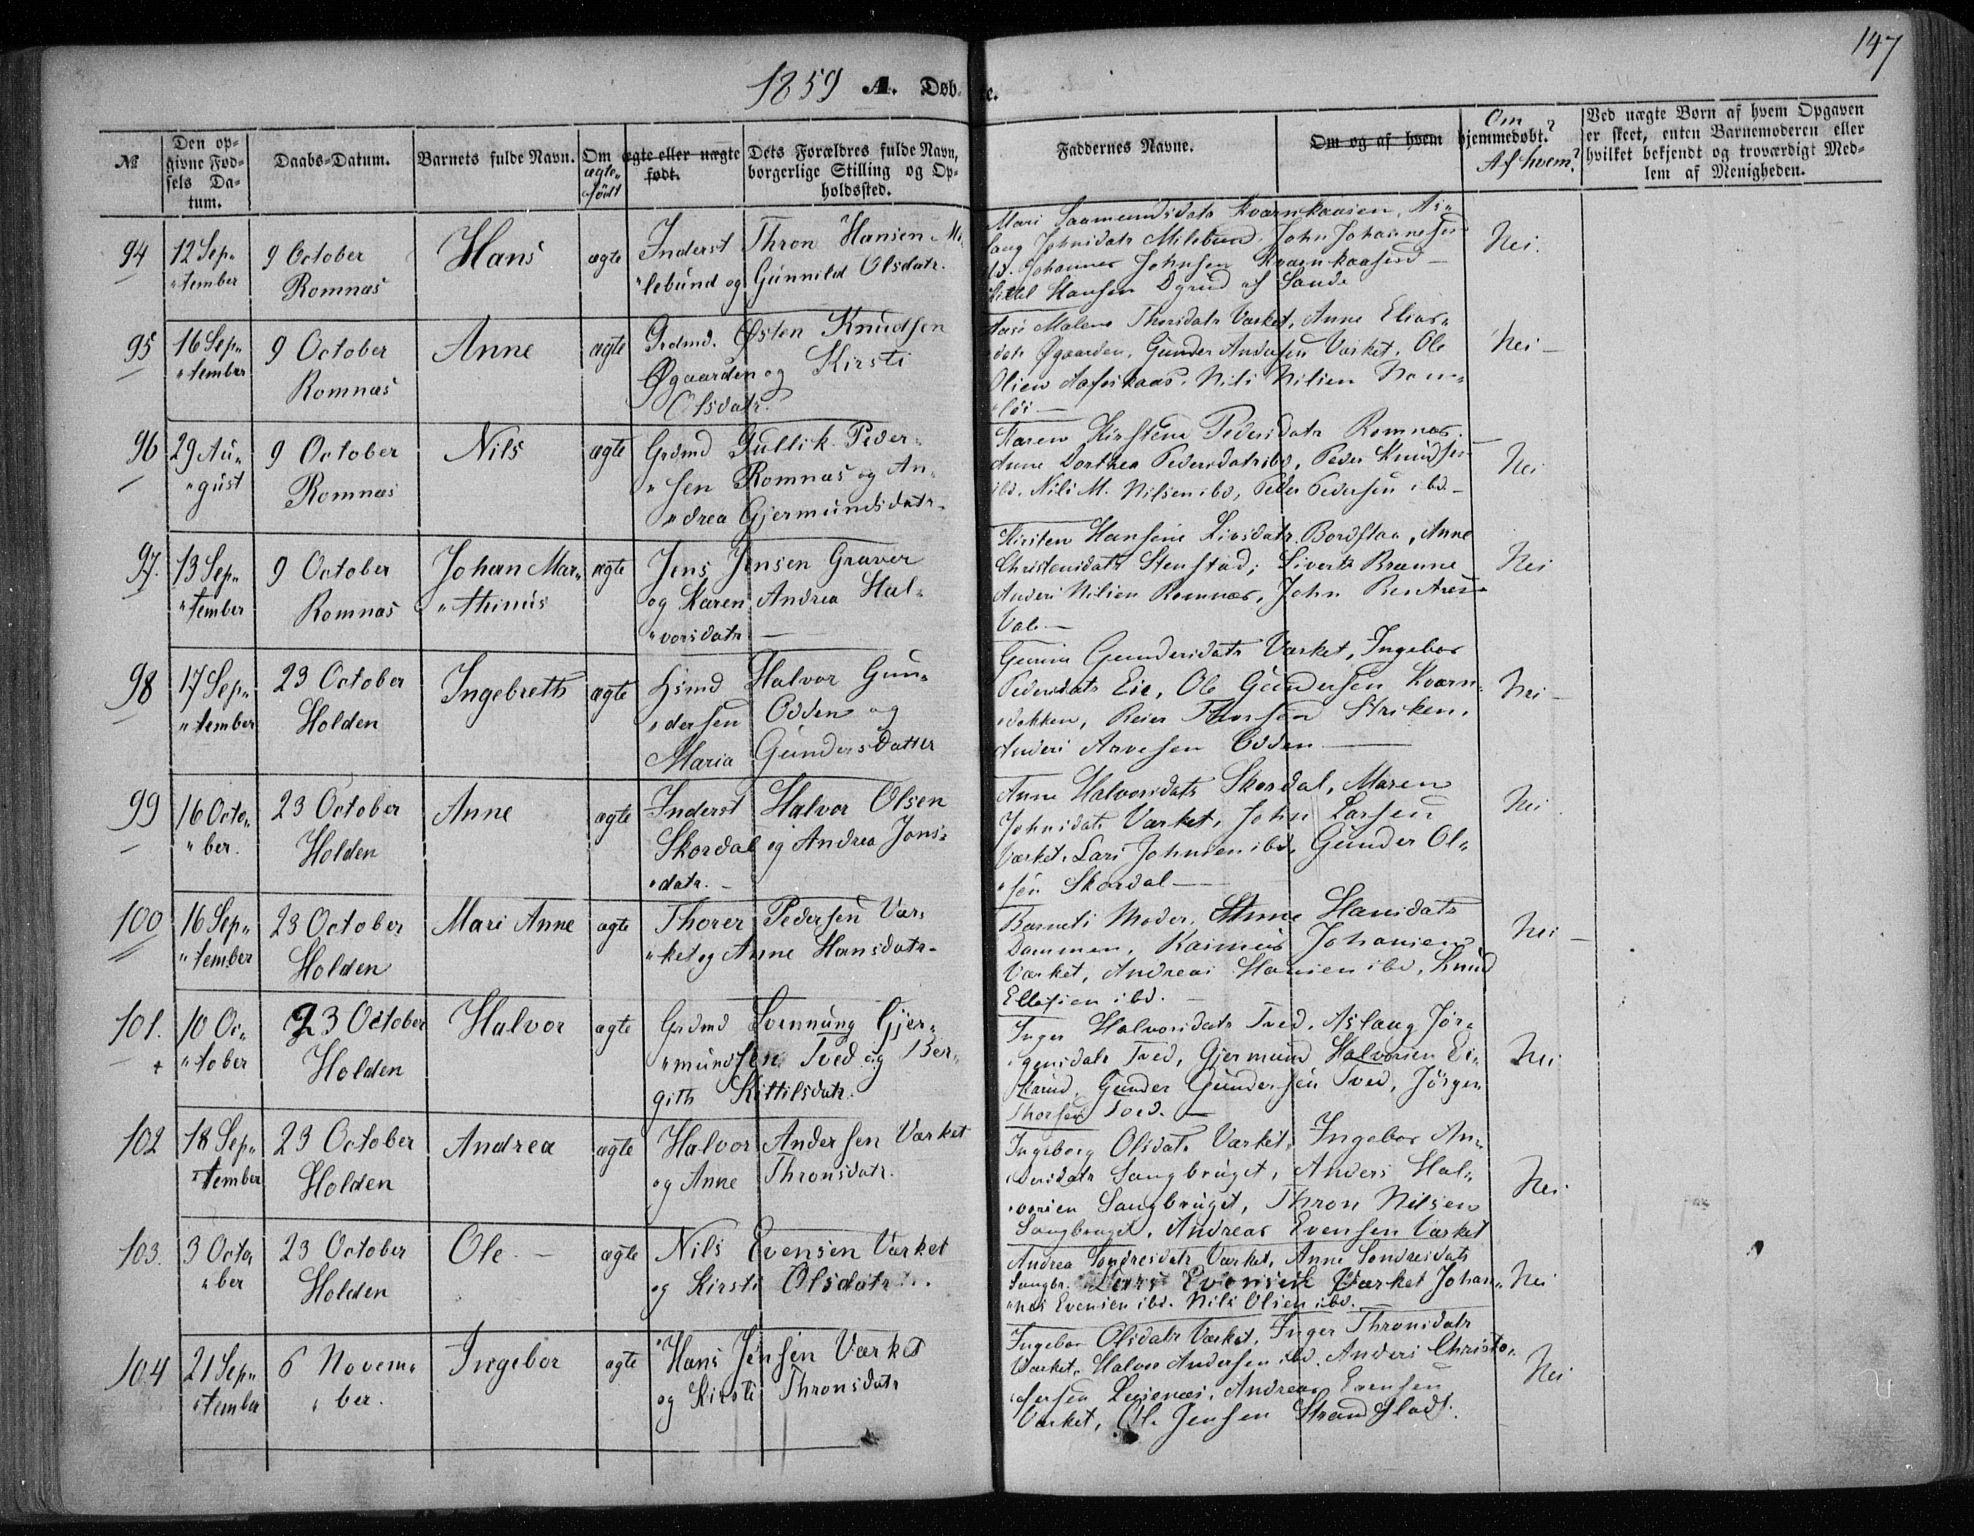 147
1859 A. Døbte.
№
Den opgivne Fødsels Datum.
Daabs-Datum.
Barnets fulde Navn.
Om ægte eller uægte født.
ægte født
Dets Forældres fulde Navn, borgerlige Stilling og Opholdssted.
Faddernes Navne.
Om og af hvem hjemmedøbt?
Om
Af hvem?
Ved uægte Børn af hvem Opgaven er skeet, enten Barnemoderen eller hvilket bekjendt og troværdigt Medlem af Menigheden.
94
12 Sep„
„tember
9 October
Romnæs
Hans
ægte
Inderst Thron Hansen Mi„
„lebund og Gunnild Olsdatr.
Mari Saamundsdatr Kværnkaasen, As„
laug Johnsdatr Milebund, John Johannesen
ibd. Johannes Johnsen Kværnkaasen
Kittel Hansen Ogrud af Sande
Nei.
95
16 Sep„
„tember
9 October
Romnæs
Anne
ægte
Grdmd. Østen Knudsen
Øgaarden og Kirsti
Olsdatr.
Malene Thorsdatr Værket, Anne Elias„
datr Øgaarden, Gunder Andersen Værket, Ole
Olsen, Nils Nilsen Rom„
Nei –
96
29 Au„
„gust
9 October
Romnæs
Nils
ægte
Grdmd Gullik Peder„
„sen Romnæs og An„
„drea Gjermundsdatr.
Karen Kirstene Pedersdatr Romnæs.
Anne Dorthea Pedersdatr ibd, Peder Knudsen
ibd, Nils M. Nilsen ibd, Peder Pedersen ibd –
Nei
97.
13 Sep„
„tember
9 October
Romnæs
Johan Mar„
„thinus
ægte
Jens Jensen Graver
og Karen Andrea Hal„
„vorsdatr –
Kirsten Hansine Livsdatr Bordstaa, Anne
Christensdatr Stenstad, Sivert Brænne
Anders Nilsen Romnæs, John Bentsen
Vale –
Nei
98
17 Sep„
„tember
23 October
Holden
Ingebreth
ægte
Hsmd Halvor Gun„
„dersen Odden og
Maria Gundersdatter
Gundersdatr Værket, Ingebor
Pedersdatr Eie, Ole Gundersen Kværn„
„dokken, Reier Thorsen Striken,
Anders Arvesen Odden –
Nei –
99
16 Octo„
„ber.
23 October
Holden
Anne
ægte
Inderst Halvor Olsen
Skordal og Andrea Jons„
„datr. –
Anne Halvorsdatr Skordal, Maren
Johnsdatr Værket, John Larsen
Værket, Lars Johnsen ibd, Gunder Ol„
„sen Skordal –
Nei
100
16 Sep„
„tember
23 October
Holden
Mari Anne
ægte
Thorer Pedersen Vær„
„ket og Anne Hansdatr –
Barnets Moder, Anne Hansdatr
Dammen, Rasmus Johansen
Værket, Andreas Hansen ibd, Knud
Ellefsen ibd. –
Nei –
101.
+
10 Oc„
„tober
23 October
Holden
Halvor
ægte
Grdmd Svennung Gjer„
„mundsen Tved og Ber„
gith Kittilsdatr.
Inger Halvorsdatr Tved, Aslaug Jør„
„gensdatr Tved, Gjermund Halvorsen Ei„
„karud, Gunder Gundersen Tved, Jørgen
Thorsen Tved. –
Nei
102
18 Sep„
„tember
23 October
Holden
Andrea
ægte
Halvor Andersen Værket
og Anne Thronsdatr.
Ingeborg Olsdatr Værket, Ingebor An„
„dersdatr Saugbruget, Anders Hal„
„vorsen Saugbruget, Thron Nilsen
Saugbruget, Andreas Evensen Værket
Nei
103.
3 Octo„
„ber
23 October
Holden
Ole –
ægte
Nils Evensen Værket
og Kirsti Olsdatr.
Andrea Sondresdatr Værket, Anne Sondresdatr
Saugbr. Evensen Værket Johan„
„nes Evensen ibd. Nils Olsen ibd.
Nei
104
21 Sep„
„tember
6 Novem„
„ber.
Ingebor
ægte
Hans Jensen Værket
og Kirsti Thronsdatr
Ingebor Olsdatr Værket, Inger Thronsdatr
Værket, Halvor Andersen ibd. Anders Christo„
„fersen, Andreas Evensen
Værket, Ole Jensen Strand
Nei